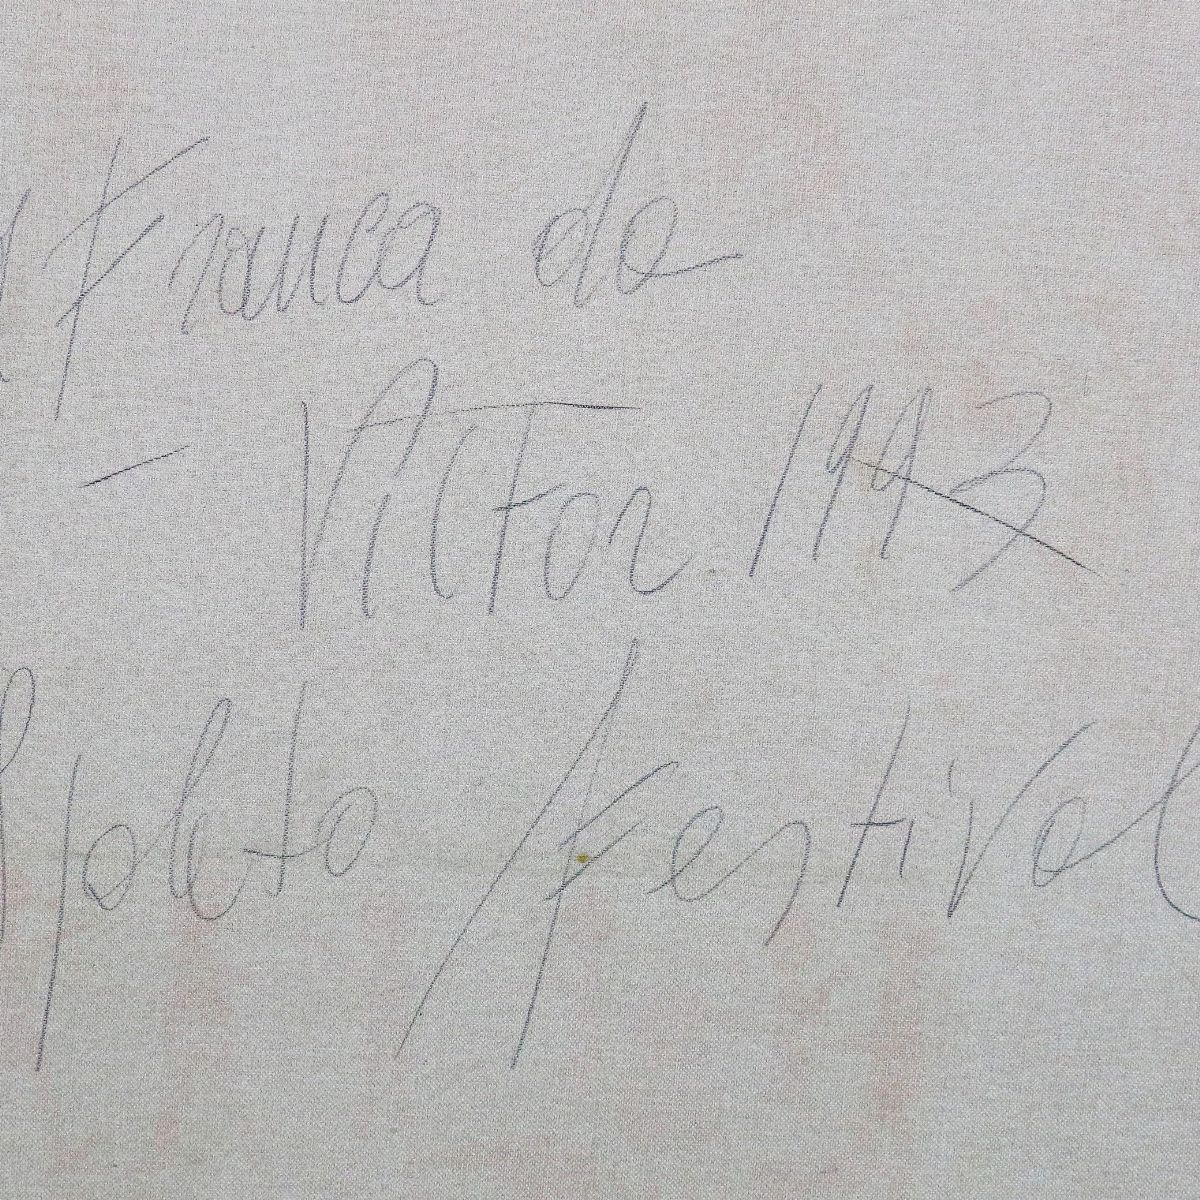 Franca da
- Victor 1993
Spoleto Festival